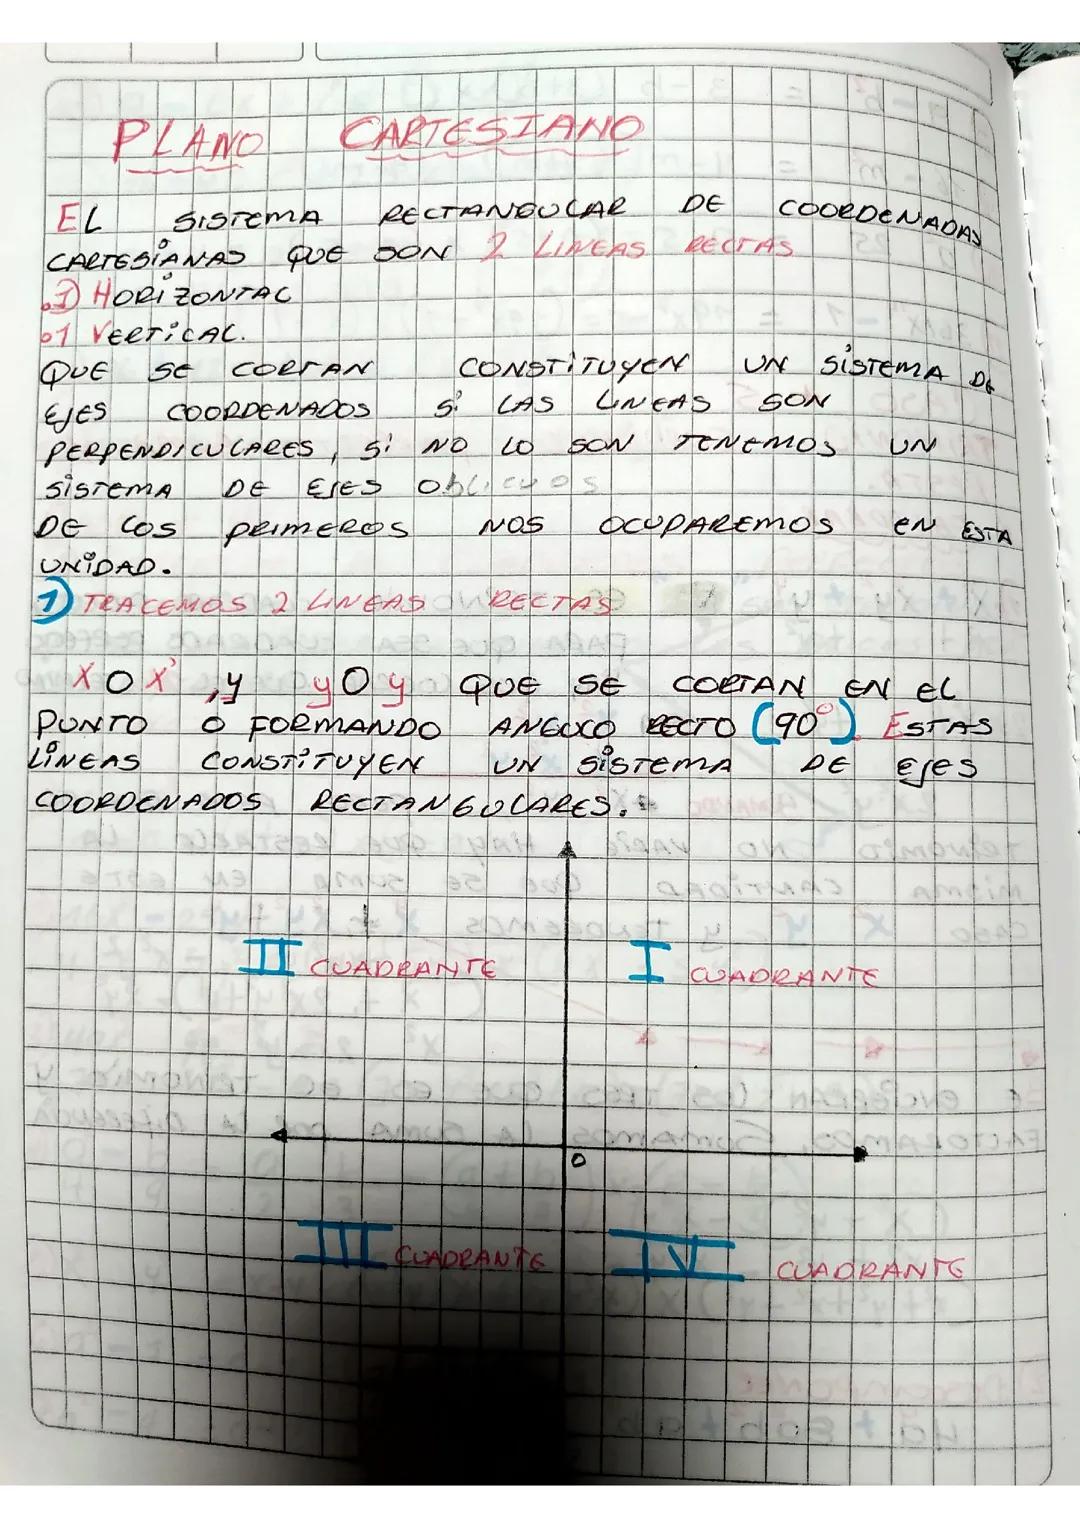 PLANO CARTESIANO
EL SISTEMA RECTANGULAR DE COORDENADAS
CARTESIANAS QUE SON 2 LINEAS RECTAS
.1) HORIZONTAL
.1 VERTICAL.
QUE SE CORTAN CONSTITUYEN UN SISTEMA DE
EJES COORDENADOS SI LAS LINEAS SON
PERPENDICULARES, SI NO LO SON TENEMOS UN
SISTEMA DE EJES OBLICUOS
DE LOS PRIMEROS NOS OCUPAREMOS EN ESTA
UNIDAD.
1) TRACEMOS 2 LINEAS RECTAS
X O X', y y O y QUE SE CORTAN EN EL
PUNTO O FORMANDO ANGULO RECTO (90°). ESTAS
LINEAS CONSTITUYEN UN SISTEMA DE EJES
COORDENADOS RECTANGULARES.
II CUADRANTE I CUADRANTE
O
III CUADRANTE IV CUADRANTE